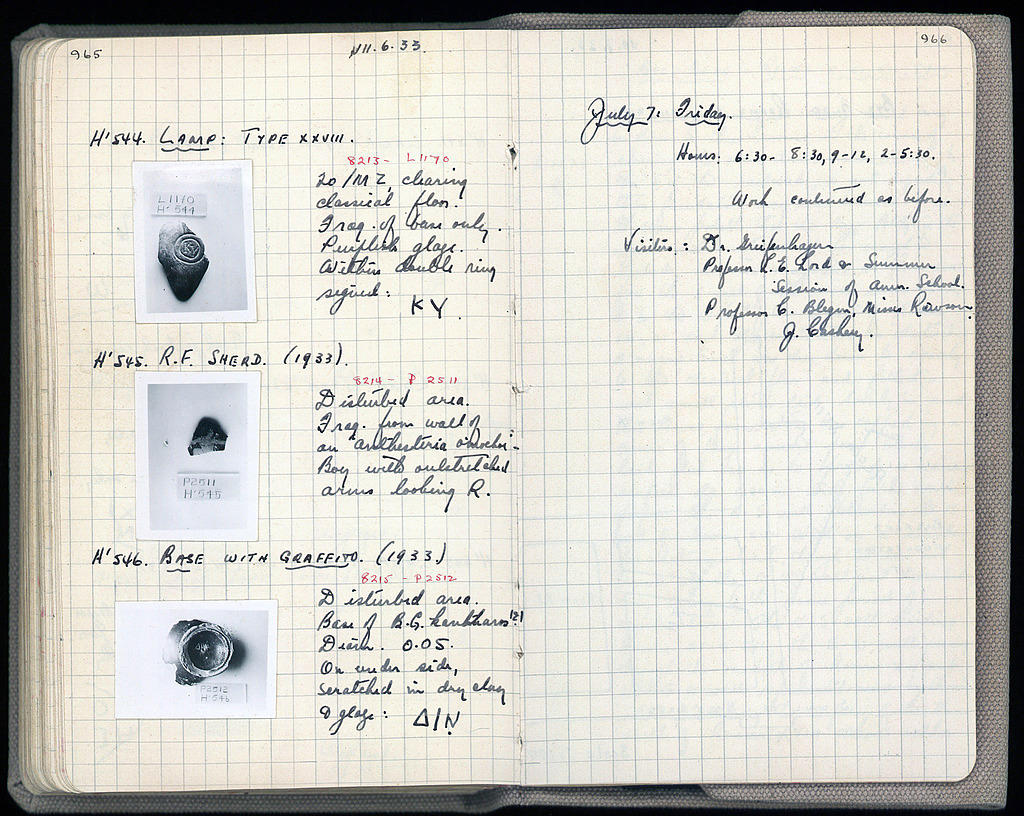 965
VII.6.33.
H'544. LAMP: TYPE XXVIII.
8213 - L1170
L1170
H'544
20/MZ, clearing
classical floor.
Frag. of base only.
Purplish glaze.
Within double ring
signed:
KY.
H'545. R.F. SHERD. (1933).
8214 - P 2511
P2511
H'545
Disturbed area.
Frag. from wall of
an "anthesteria oinochoe" -
Boy with outstretched
arms looking R.
H'546. BASE WITH GRAFFITO. (1933)
8215 - P2512
P2512
H'546
Disturbed area.
Base of B.G. kantharos(?)
Diam. 0.05.
On under side,
scratched in dry clay
& glaze: Δ/N
966
July 7: Friday.
Hours: 6:30 - 8:30, 9-12, 2-5:30.
Work continued as before.
Visitors: Dr. Greifenhagen
Professor L. E. Lord & Summer
Session of Amer. School.
Professor C. Blegen, Misses Rawson
J.